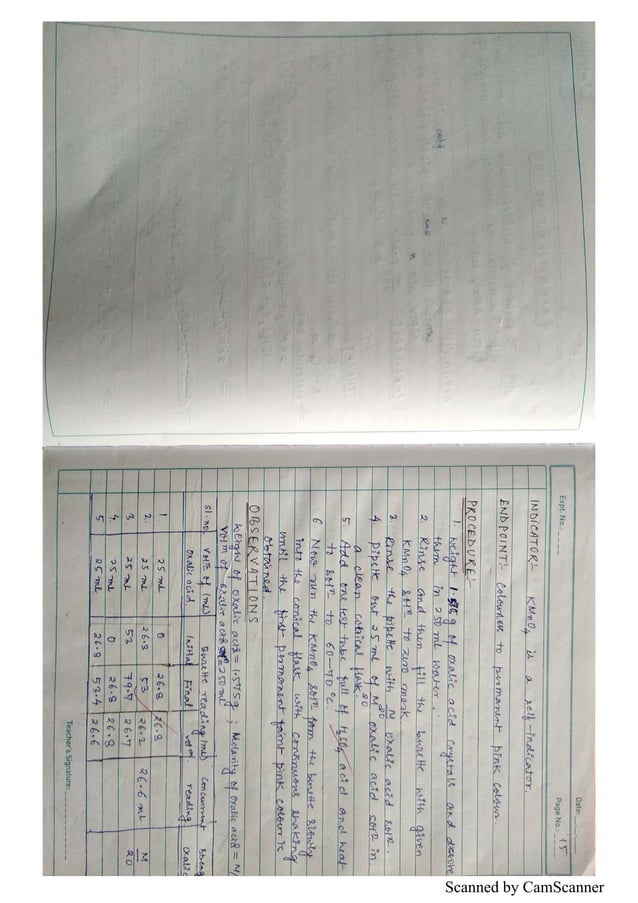 Date:
Expt. No.:
Page No.: 15
INDICATOR:- KMnO4 is a self-Indicator.
ENDPOINT:- Colourless to permanent pink colour.
PROCEDURE:-
1. Weight 1.575g of oxalic acid crystals and dissolve
them in 250 ml water.
2. Rinse and then fill the burette with given
KMnO4 solⁿ to zero mark.
3. Rinse the pipete with M/20 oxalic acid solⁿ.
4. Pipete out 25 ml of M/20 oxalic acid solⁿ in
a clean conical flask.
5. Add one test tube full of H2SO4 acid and heat
to solⁿ to 60-70°C.
6 Now run the KMnO4 solⁿ from the burette slowly
into the conical flask with continuous shaking
until the first permanent faint pink colour is
obtained
OBSERVATIONS
Weight of oxalic acid = 1.575g ; Molarity of oxalic acid = M/
Volm of oxalic acid = 250 ml
Sl.no Volm of (ml) Oxalic acid Burette reading (ml) Initial Final Volm Concurrent reading Oxalic
1. 25 ml 0 26.8 26.8
2. 25 ml 26.8 53 26.2 26.6 ml M/20
3 25 ml 53 79.7 26.7
4. 25 ml 0 26.8 26.8
5 25 ml 26.8 53.4 26.6
Teacher's Signature:
Scanned by CamScanner